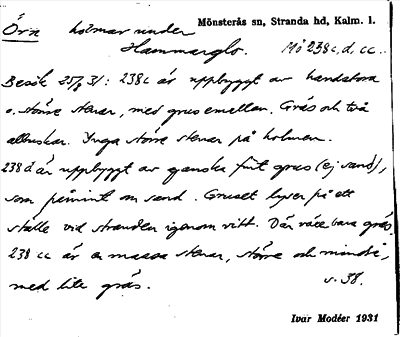 Örn holmar under Mönsterås sn, Stranda hd, Kalm. l.
Hammarglo. Mö 238 c, d, cc.
Besök 25/8 31: 238 c är uppbyggt av handstora
o. större stenar, med grus emellan. Gräs och två
albuskar. Inga större stenar på holmen.
238 d är uppbyggt av ganska fint grus (ej sand),
som påmint om sand. Gruset lyser på ett
ställe vid stranden igenom vitt. Där växer bara gräs.
238 cc är en massa stenar, större och mindre,
med lite gräs. s. 38.
Ivar Modéer 1931